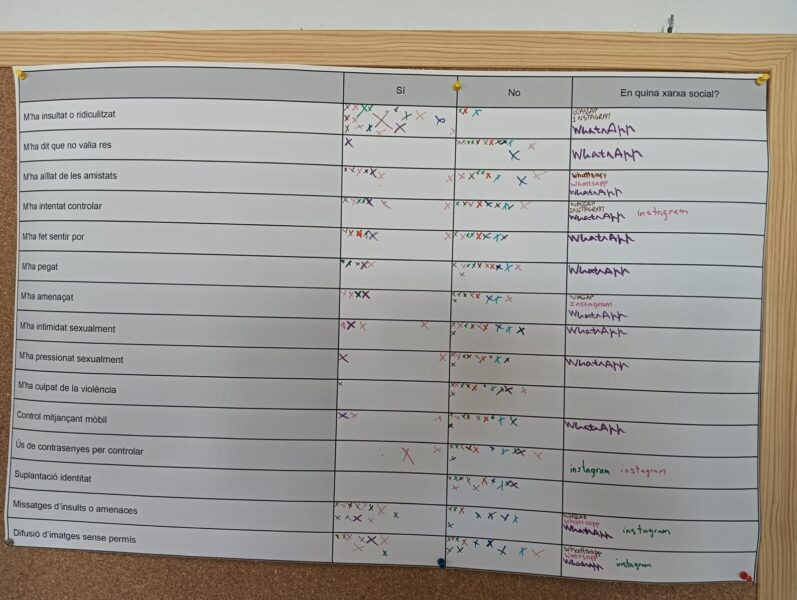 Sí
No
En quina xarxa social?
M'ha insultat o ridiculitzat
WASSAP
INSTAGRAM
WhatsApp
M'ha dit que no valia res
WhatsApp
M'ha aïllat de les amistats
Whattsapp
Whatssapp
WhatsApp
M'ha intentat controlar
WASSAP
INSTAGRAM
WhatsApp instagram
M'ha fet sentir por
WhatsApp
M'ha pegat
WhatsApp
M'ha amenaçat
Instagram
WhatsApp
M'ha intimidat sexualment
WhatsApp
M'ha pressionat sexualment
WhatsApp
M'ha culpat de la violència
Control mitjançant mòbil
WhatsApp
Ús de contrasenyes per controlar
instagram instagram
Suplantació identitat
Missatges d'insults o amenaces
WhatsApp instagram
Difusió d'imatges sense permís
Whattsapp
WhatsApp instagram